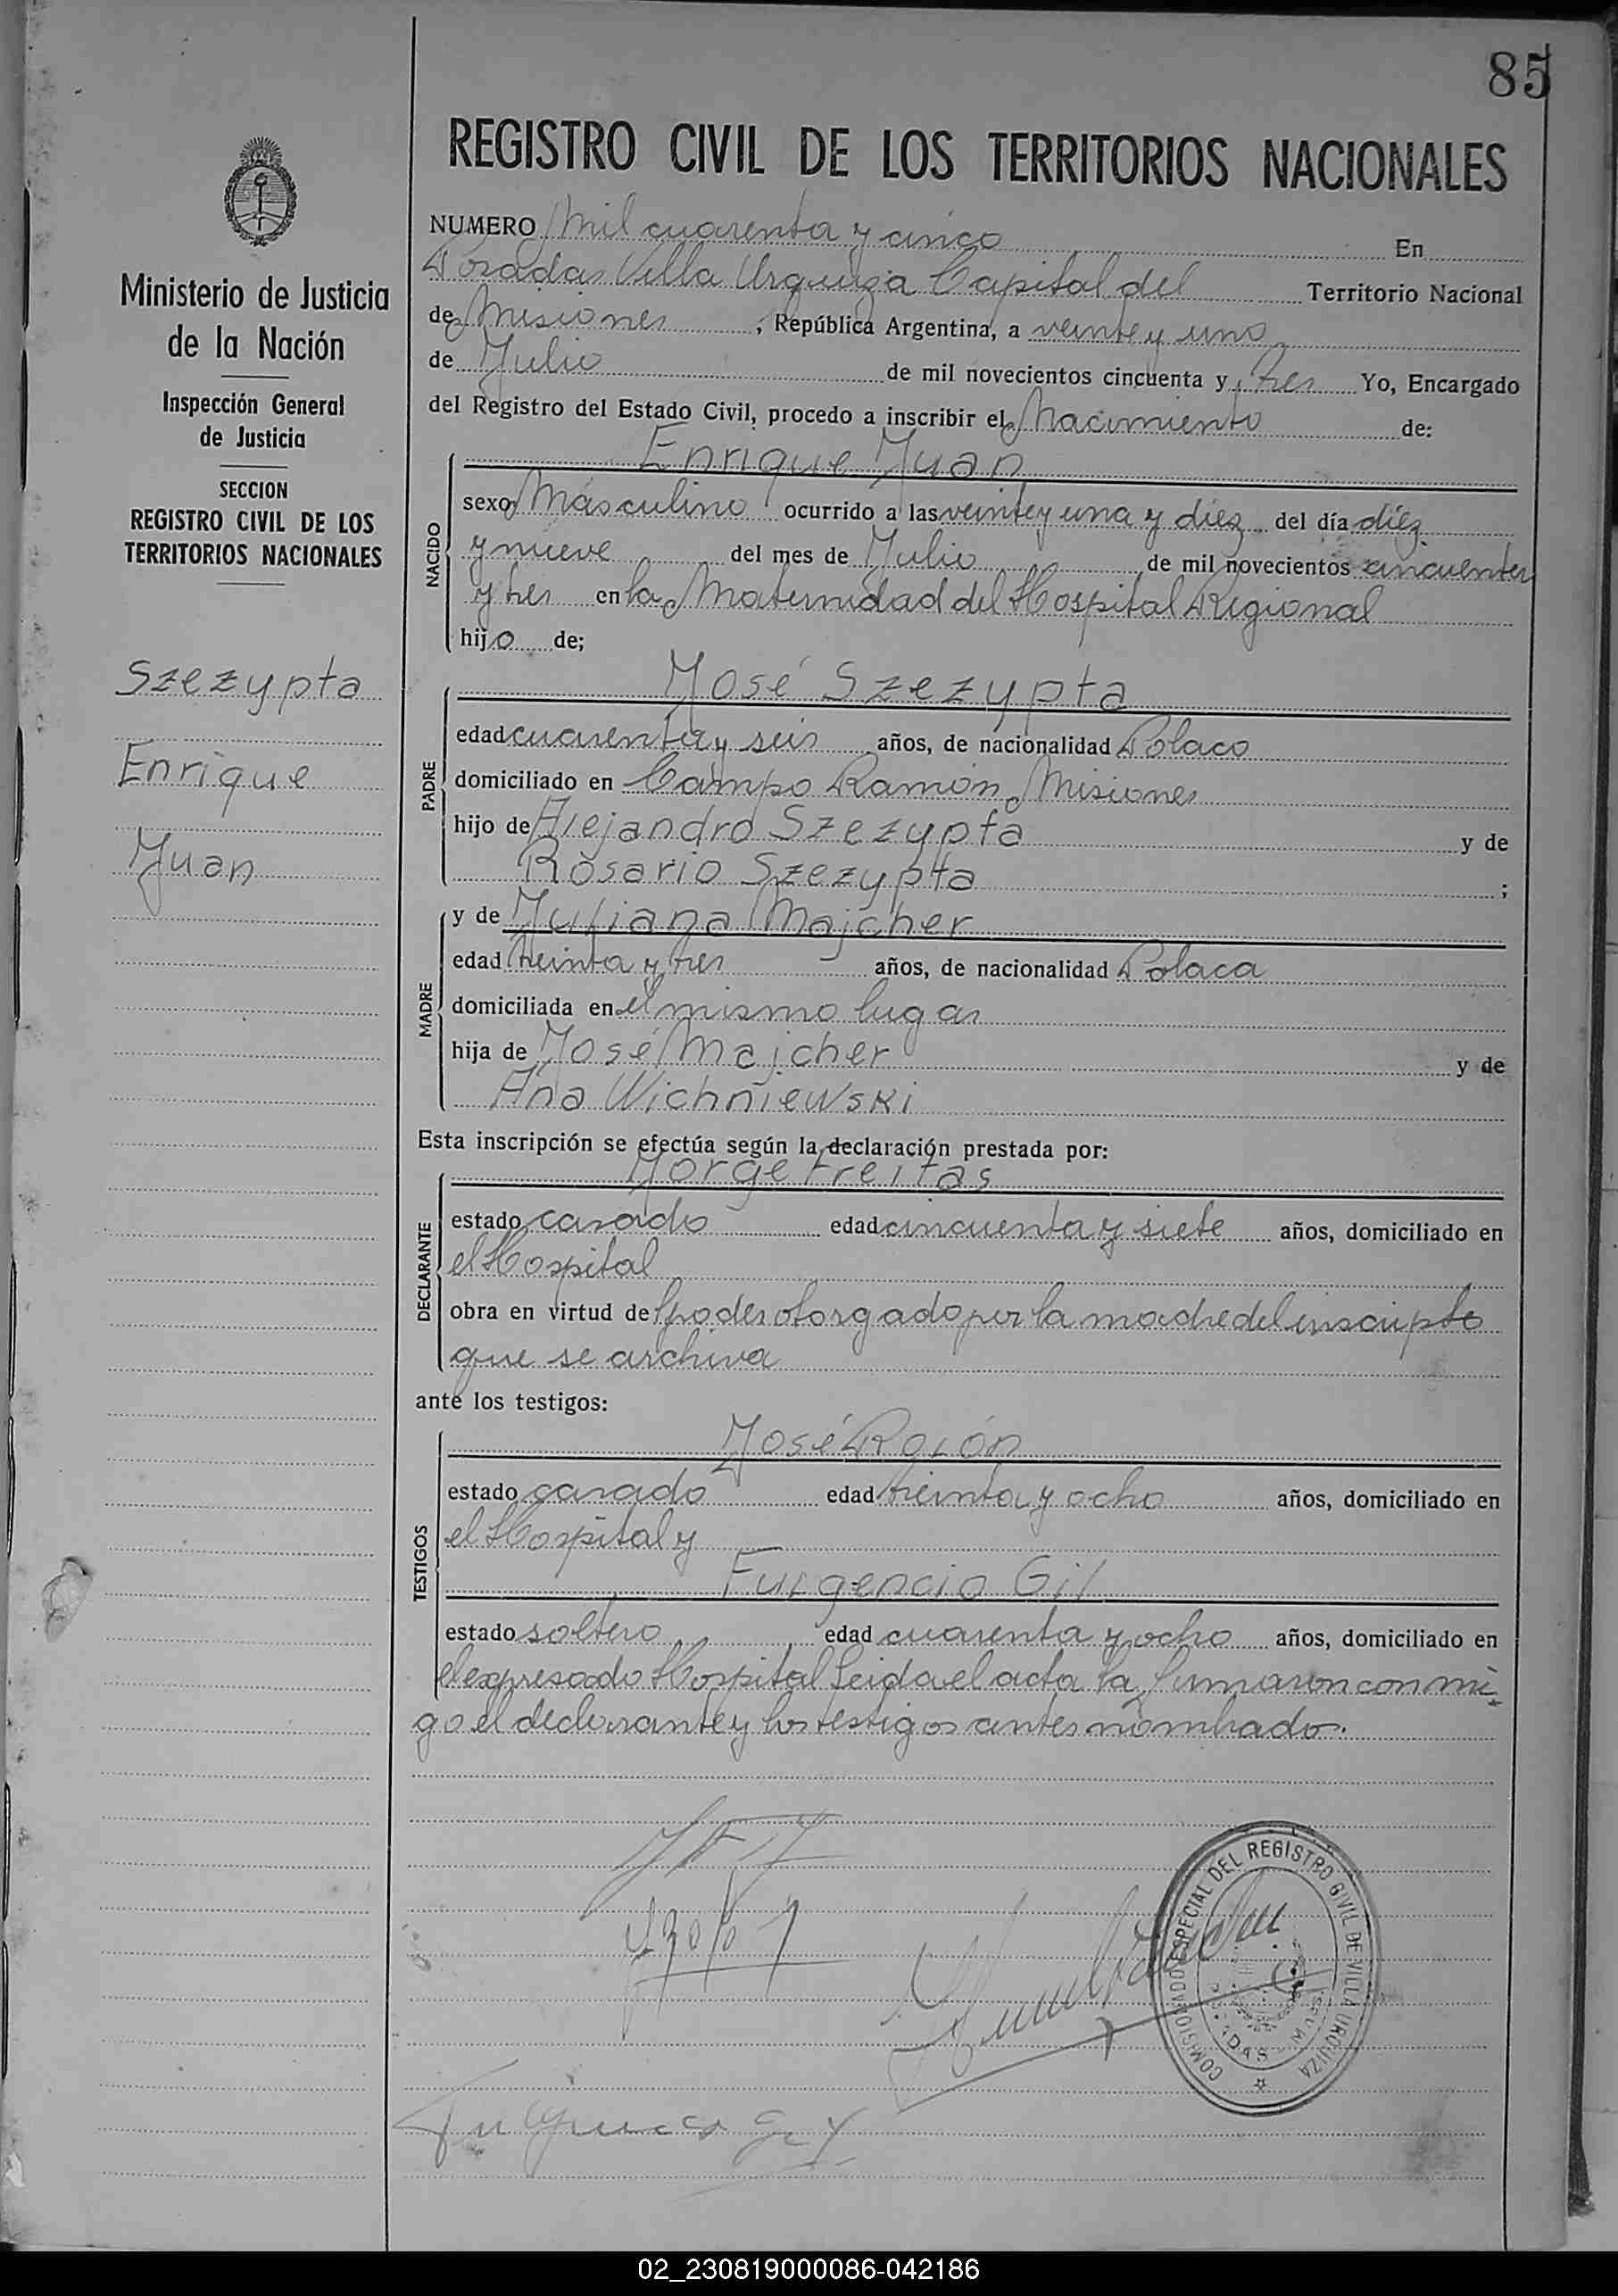 85
REGISTRO CIVIL DE LOS TERRITORIOS NACIONALES
Ministerio de Justicia
de la Nación
Inspección General
de Justicia
SECCION
REGISTRO CIVIL DE LOS
TERRITORIOS NACIONALES
Szezypta
Enrique
Juan
NUMERO Mil cuarenta y cinco En
Posadas Villa Urquiza Capital del Territorio Nacional
de Misiones, República Argentina, a veinte y uno
de Julio de mil novecientos cincuenta y tres Yo, Encargado
del Registro del Estado Civil, procedo a inscribir el Nacimiento de:
Enrique Juan
NACIDO
sexo Masculino ocurrido a las veinte y una y diez del día diez
y nueve del mes de Julio de mil novecientos cincuenta
y tres en la Maternidad del Hospital Regional
hijo de;
José Szezypta
PADRE
edad cuarenta y seis años, de nacionalidad Polaco
domiciliado en Campo Ramón, Misiones
hijo de Alejandro Szezypta y de
Rosario Szezypta ;
y de Juliana Majcher
MADRE
edad treinta y tres años, de nacionalidad Polaca
domiciliada en el mismo lugar
hija de José Majcher y de
Ana Wichniewski
Esta inscripción se efectúa según la declaración prestada por:
Jorge Freitas
DECLARANTE
estado casado edad cincuenta y siete años, domiciliado en
el Hospital
obra en virtud del poder otorgado por la madre del inscripto
que se archiva
ante los testigos:
José Rolón
TESTIGOS
estado casado edad treinta y ocho años, domiciliado en
el Hospital y
Fulgencio Gil
estado soltero edad cuarenta y ocho años, domiciliado en
el expresado Hospital leida el acta la firmaron conmi-
go el declarante y los testigos antes nombrado.
COMISIONADO ESPECIAL DEL REGISTRO CIVIL DE VILLA URQUIZA
02_230819000086-042186